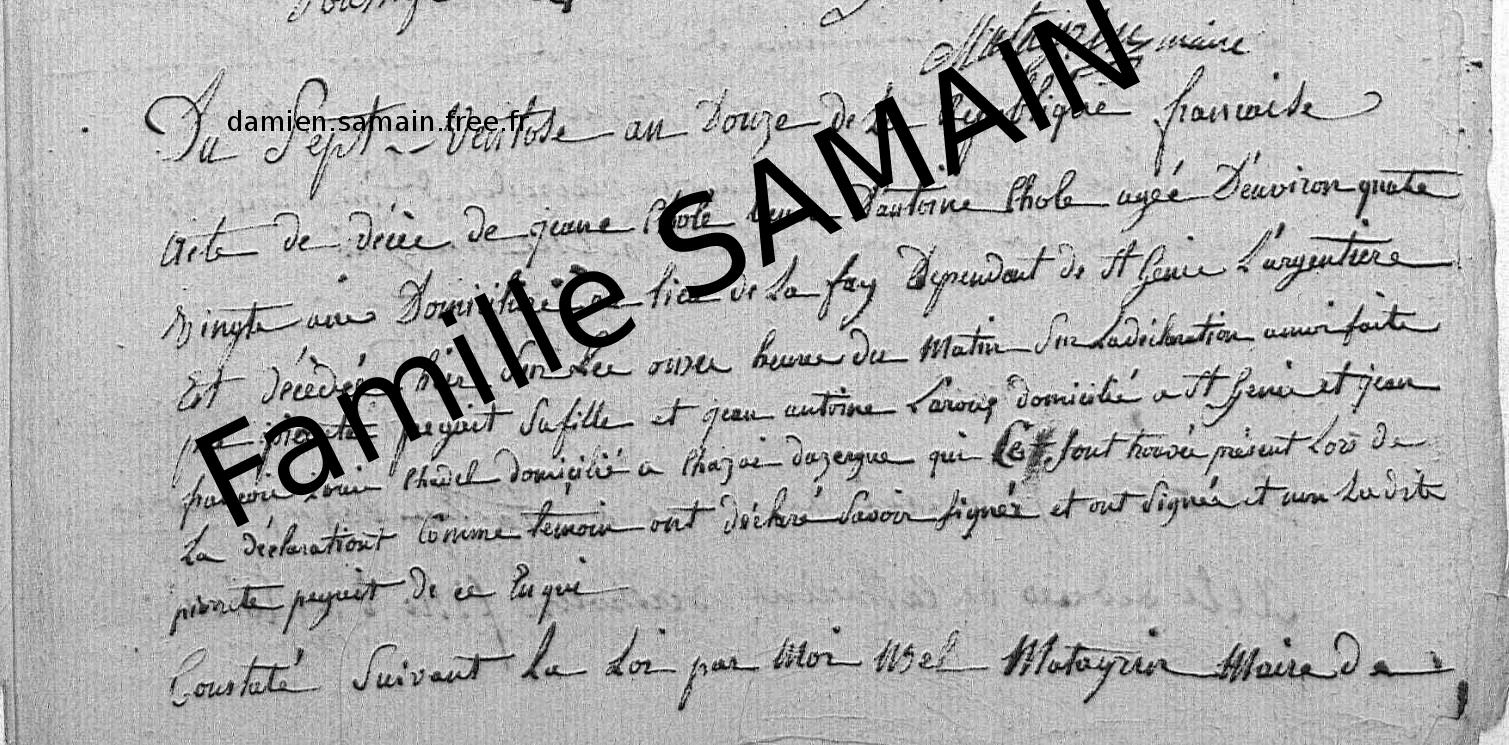 maire
damien.samain.free.fr
Famille SAMAIN
Du Sept Ventose an Douze de La Republique francaise
acte de décée de jeane Chole d'antoine Chole agéé D'environ quatre
vingte ans Domicilliée lieu de La fay Dependant de St Genie L'argentiere
Et décèdée hier Sur Lee onze heure du Matin Sur La déclaration a moi faite
par pierrete peyait Sa fille et jean antoine domicilié a St Genie et jean
francoi Loui domicilié a Chazai dazergue qui Sont trouvée présent Lors de
La déclarationt Comme temoin ont déclaré Savoir signér et ont Signée et non La dite
pierrete peyait de ce
Constaté Suivant La Loi par Moi Matayrin Maire De